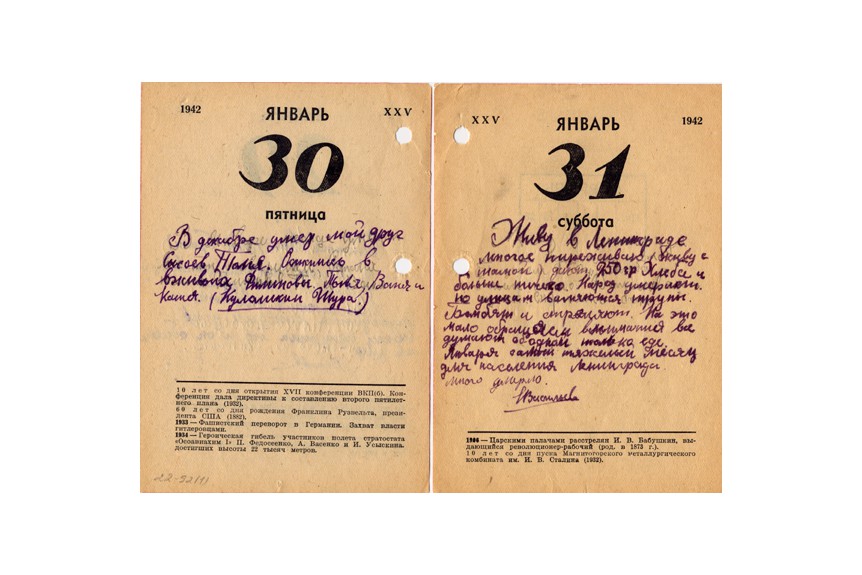 1942 ЯНВАРЬ XXV
30
пятница
В декабре умер мой друг
Сусоев Толя. Остались в
живых Филиповы Толя, Ваня и
Катя. (Куломкин Шура.)
10 лет со дня открытия XVII конференции ВКП(б). Кон-
ференция дала директивы к составлению второго пятилет-
него плана (1932).
60 лет со дня рождения Франклина Рузвельта, прези-
дента США (1882).
1933 — Фашистский переворот в Германии. Захват власти
гитлеровцами.
1934 — Героическая гибель участников полета стратостата
«Осоавиахим I» П. Федосеенко, А. Васенко и И. Усыскина,
достигших высоты 22 тысяч метров.
22-92/41
XXV ЯНВАРЬ 1942
31
суббота
Живу в Ленинграде
многое переживаю. живу с
250 гр Хлеба и
больше ничево. Народ умерают.
по улицам валяются трупы.
Бомбят и стреляют. На это
мало обращаем внимания все
думают об одном только еде.
Январь самый тяжелый месяц
для населения Ленинграда.
много умерло.
Васильева
1906 — Царскими палачами расстрелян И. В. Бабушкин, вы-
дающийся революционер-рабочий (род. в 1873 г.).
10 лет со дня пуска Магнитогорского металлургического
комбината им. И. В. Сталина (1932).